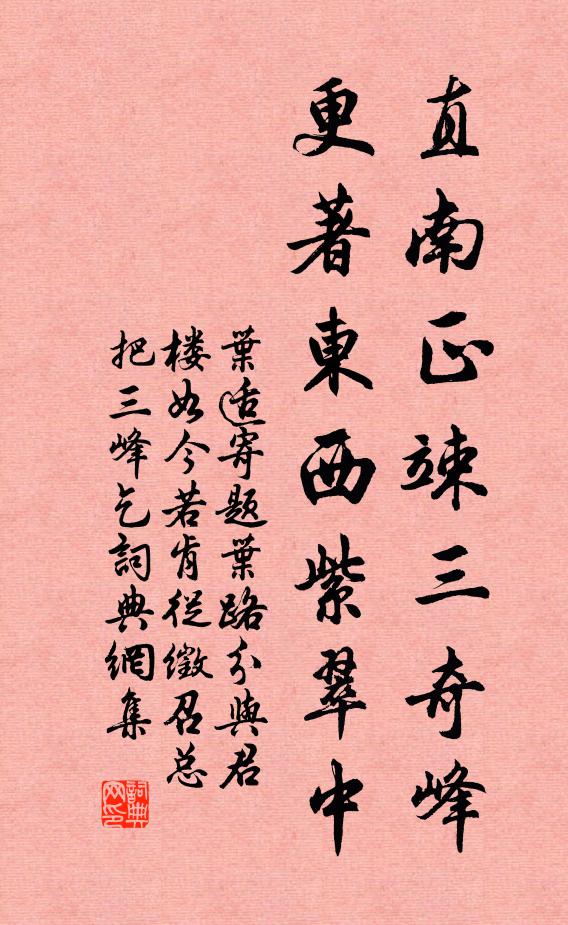 直南正竦三奇峰
更著東西紫翠中
葉适寄題葉路分與君
楼如今若肯從徵召总
把三峰乞詞典網集
詞典网印